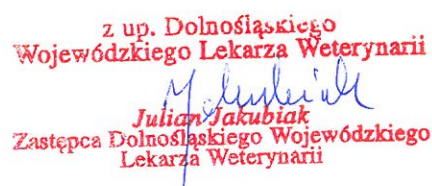 z up. Dolnośląskiego
Wojewódzkiego Lekarza Weterynarii
Jakubiak
Julian Jakubiak
Zastępca Dolnośląskiego Wojewódzkiego
Lekarza Weterynarii